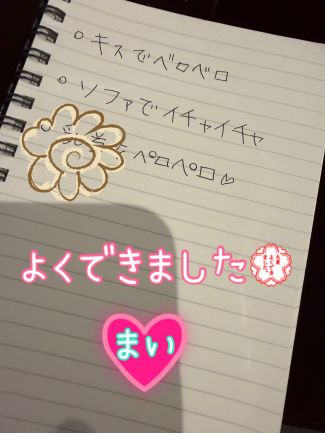 。キスでベロベロ
。ソファでイチャイチャ
。ペロペロ♡
よくできました
まい